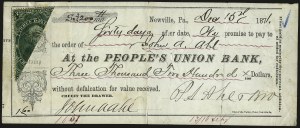 $3500 Newville, Pa. Dec 13th 1871.
Forty days after date, We promise to pay
the order of John A. Ahl
At the PEOPLE'S UNION BANK,
Three Thousand Five Hundred Dollars,
without defalcation for value received.
CREDIT THE DRAWER.